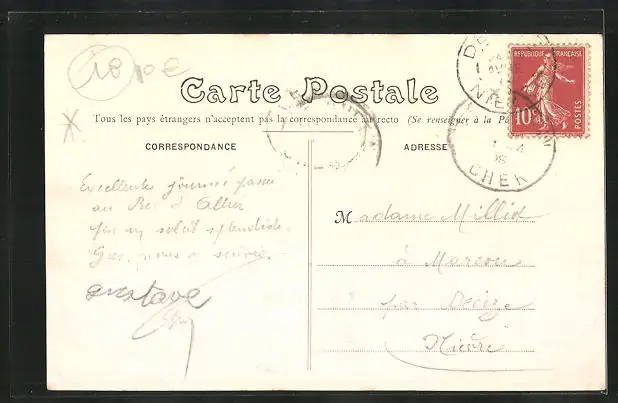 Carte Postale
Tous les pays étrangers n'acceptent pas la correspondance au recto (Se renseigner à la
CORRESPONDANCE
ADRESSE
REPUBLIQUE FRANÇAISE
10c
POSTES
CHER
Excellente journée passée
au Bec d'Allier
par un soleil splendide.
Gustave
Madame Milliot
à
par Decize
Nièvre